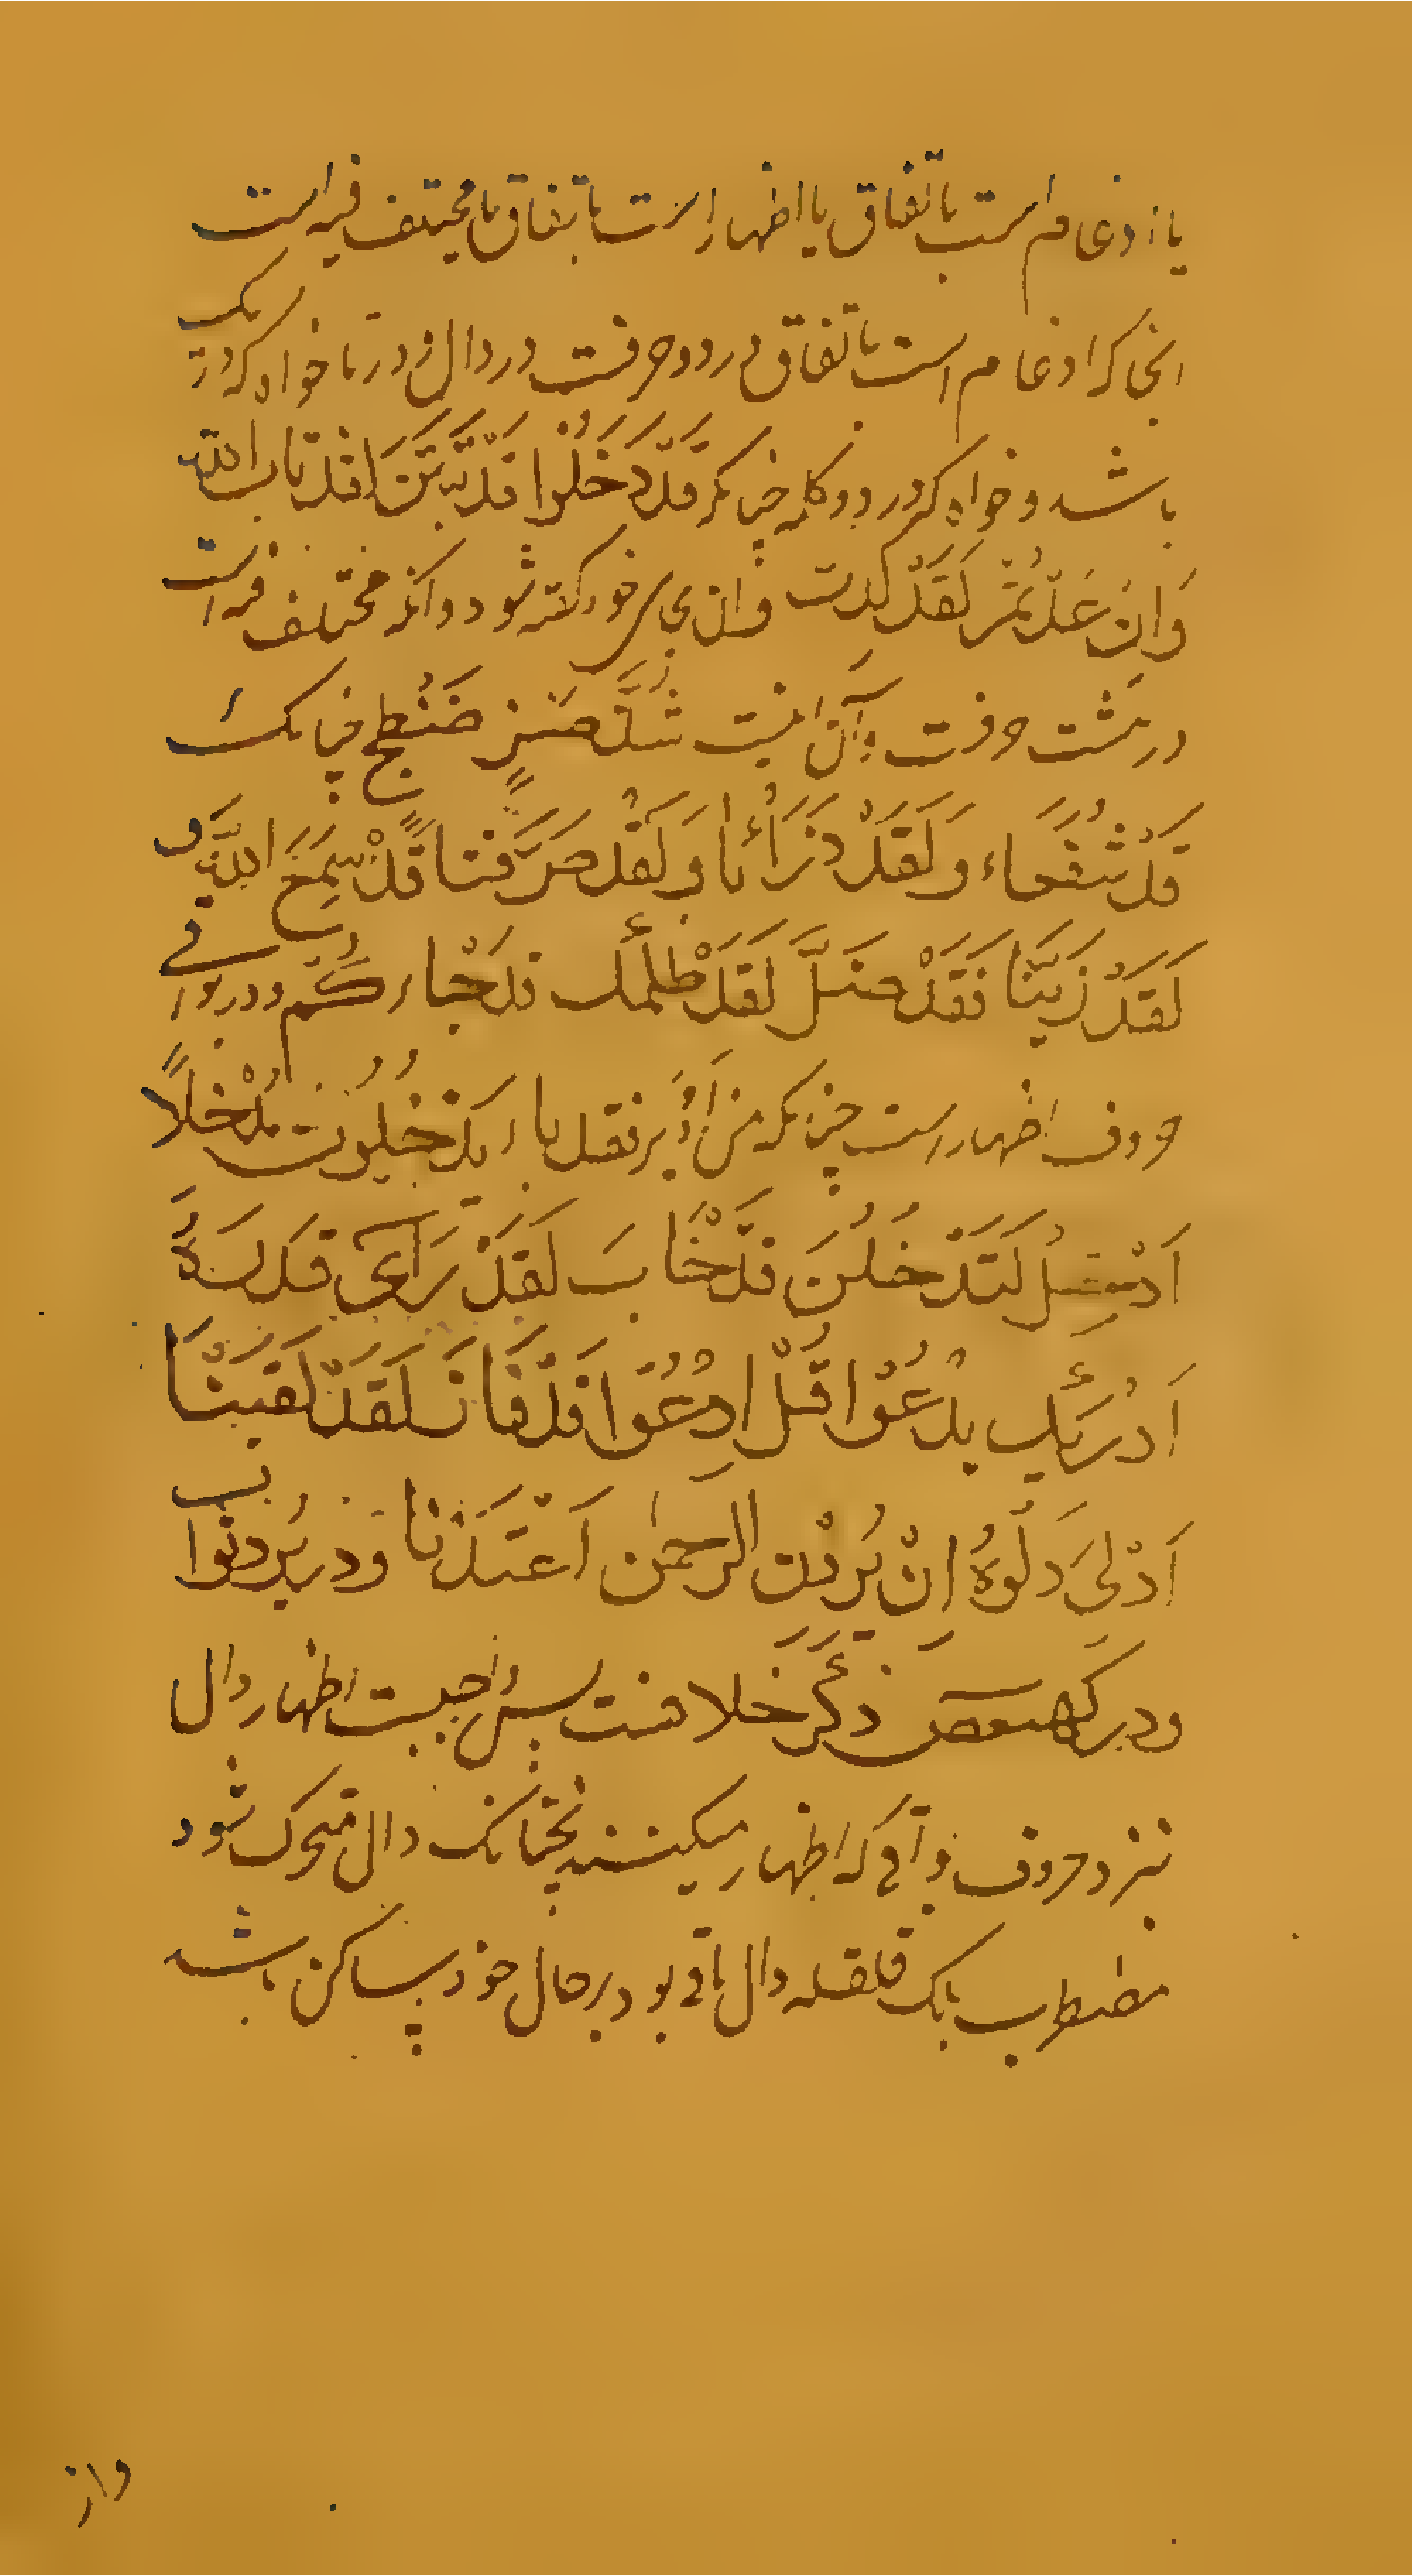 یا ادغام است باتفاق یا اظهار است باتفاق یا مختلف فیه است
انجا که ادغام است باتفاق در دو حرفست در دال و در تا خواه که در یک
باشد و خواه که در دو کلمه چنانکه قَدْ دَخَلُوا قَدْ تَبَيَّنَ لَقَدْ تَابَ الله
وَاِنْ عُدْتُمْ لَقَدْ كِدْتَ و ان بجای خود کفته شود و انکه مختلف فیه است
در هشت حرفست و آن اینست شذ صز ضظج چنانک
قَدْ شَغَفَهَا وَلَقَدْ ذَرَأْنَا وَلَقَدْ صَرَّفْنَا قَدْ سَمِعَ اللهُ وَ
لَقَدْ زَيَّنَّا فَقَدْ ضَلَّ لَقَدْ ظَلَمَكَ قَدْ جَاءَكُمْ و در بواقی
حروف اظهار است چنانکه من ادبر نقل یا يَدْخُلُونَ مُدْخَلًا
اَدْخِلْ لَتَدْخُلُنَّ قَدْ خَابَ لَقَدْ رَاَى قَدَرَهُ
اَدْرٰىكَ يَدْعُوا قُلْ ادْعُوا قَدْ فَازَ لَقَدْ لَقِينَا
اَدْلٰى دَلْوَهُ اِنْ يُرِدْنِ الرحمٰن اَعْتَدْنَا و در يُرِدْ ثَوَاب
و در كهيعص ذِكْرُ خلافست پس واجبست اظهار دال
نزد حروف بواقی که اظهار میکنند نچنانک دال متحرک شود
مضطرب بانک قلقله دال باقی بود بر حال خود ساکن باشد
واز